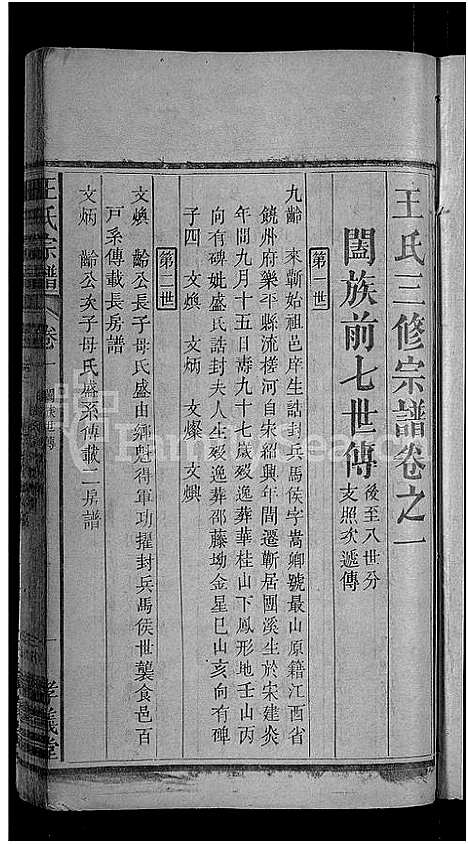 王氏三修宗譜卷之一
闔族前七世傳 後至八世分支照次遞傳
第一世
九齡 來蘄始祖邑庠生誥封兵馬侯字嵩卿號最山原籍江西省
饒州府樂平縣流槎河自宋紹興年間遷蘄居國溪生於宋建炎
年間九月十五日壽九十七歲歿逸葬華桂山下鳳形地壬山丙
向有碑妣盛氏誥封夫人生歿逸葬邵藤坳金星巳山亥向有碑
子四 文煥 文炳 文燦 文燠
第二世
文煥 齡公長子母氏盛由鄉魁得軍功擢封兵馬侯世襲食邑百
戸系傳載長房譜
文炳 齡公次子母氏盛系傳載二房譜
王氏宗譜 卷一